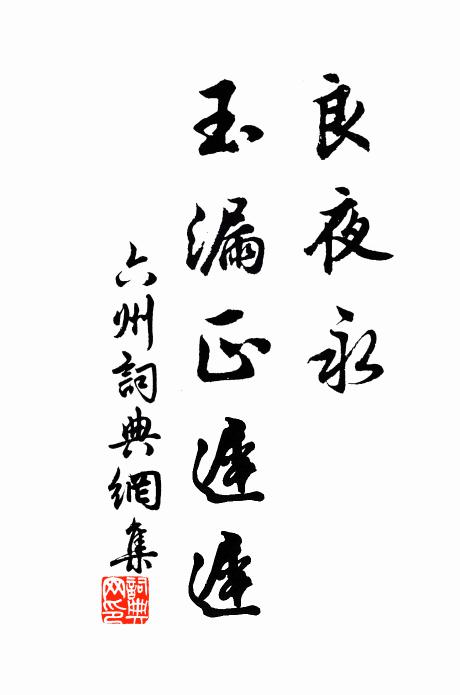 良夜永
玉漏正遲遲
六州詞典網集
詞典
网印